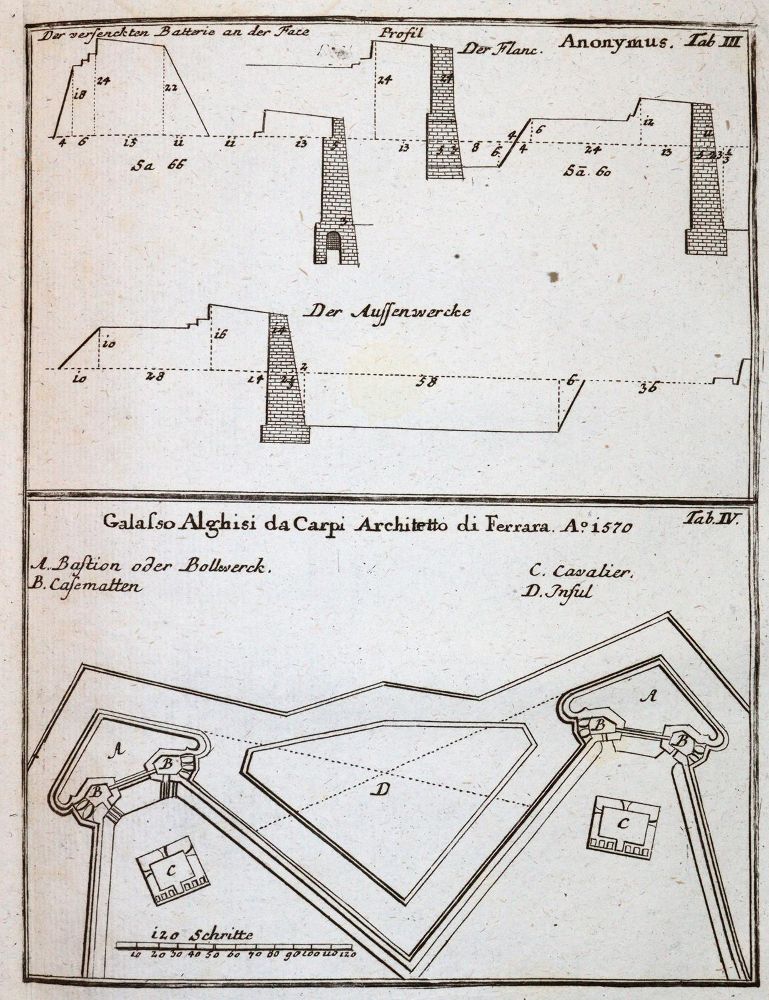 Der versenckten Batterie an der Face
Profil
Der Flanc.
Anonymus. Tab III
18 24 22
24
24
6
12
11
4 6 15 11 11 13 5
13 5 3 8 6 4 4 24 13
Sa 66
Sā. 60
3
Der Aussenwercke
10 16 14
10 28 14 2 58 6 36
Galasso Alghisi da Carpi Architetto di Ferrara. Aº 1570
Tab. IV.
A. Bastion oder Bollwerck.
B. Casematten
C. Cavalier.
D. Insul
A
B
B
C
D
A
B
B
C
120 Schritte
10 20 30 40 50 60 70 80 90 100 110 120